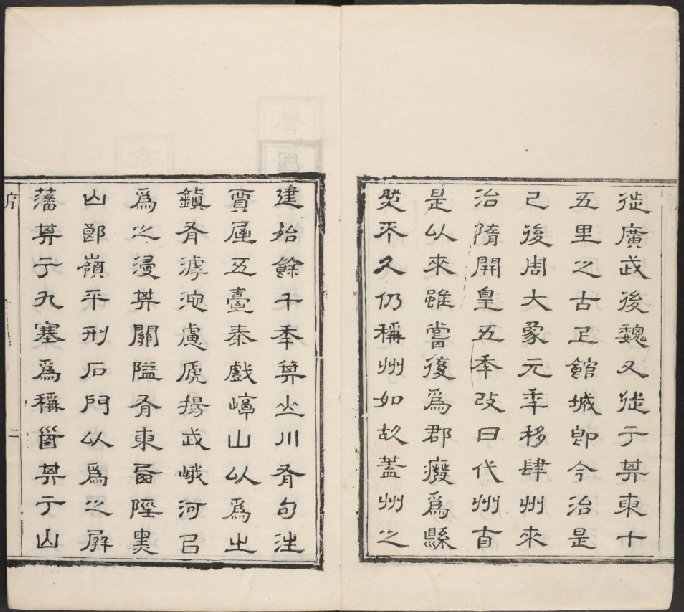 徙廣武後魏又徙于其東十
五里之古上館城即今治是
已後周大象元秊移肆州來
治隋開皇五秊改曰代州自
是以來雖嘗復爲郡癈爲縣
然不久仍稱州如故蓋州之
建始餘千秊其山川有句注
賈屋五臺泰戲崞山以爲之
鎮有滹沱慮虒揚武峨河以
爲之浸其關隘有東西陘婁
山郎嶺平刑石門以爲之屏
藩其于九塞爲稱首其于山
序 二